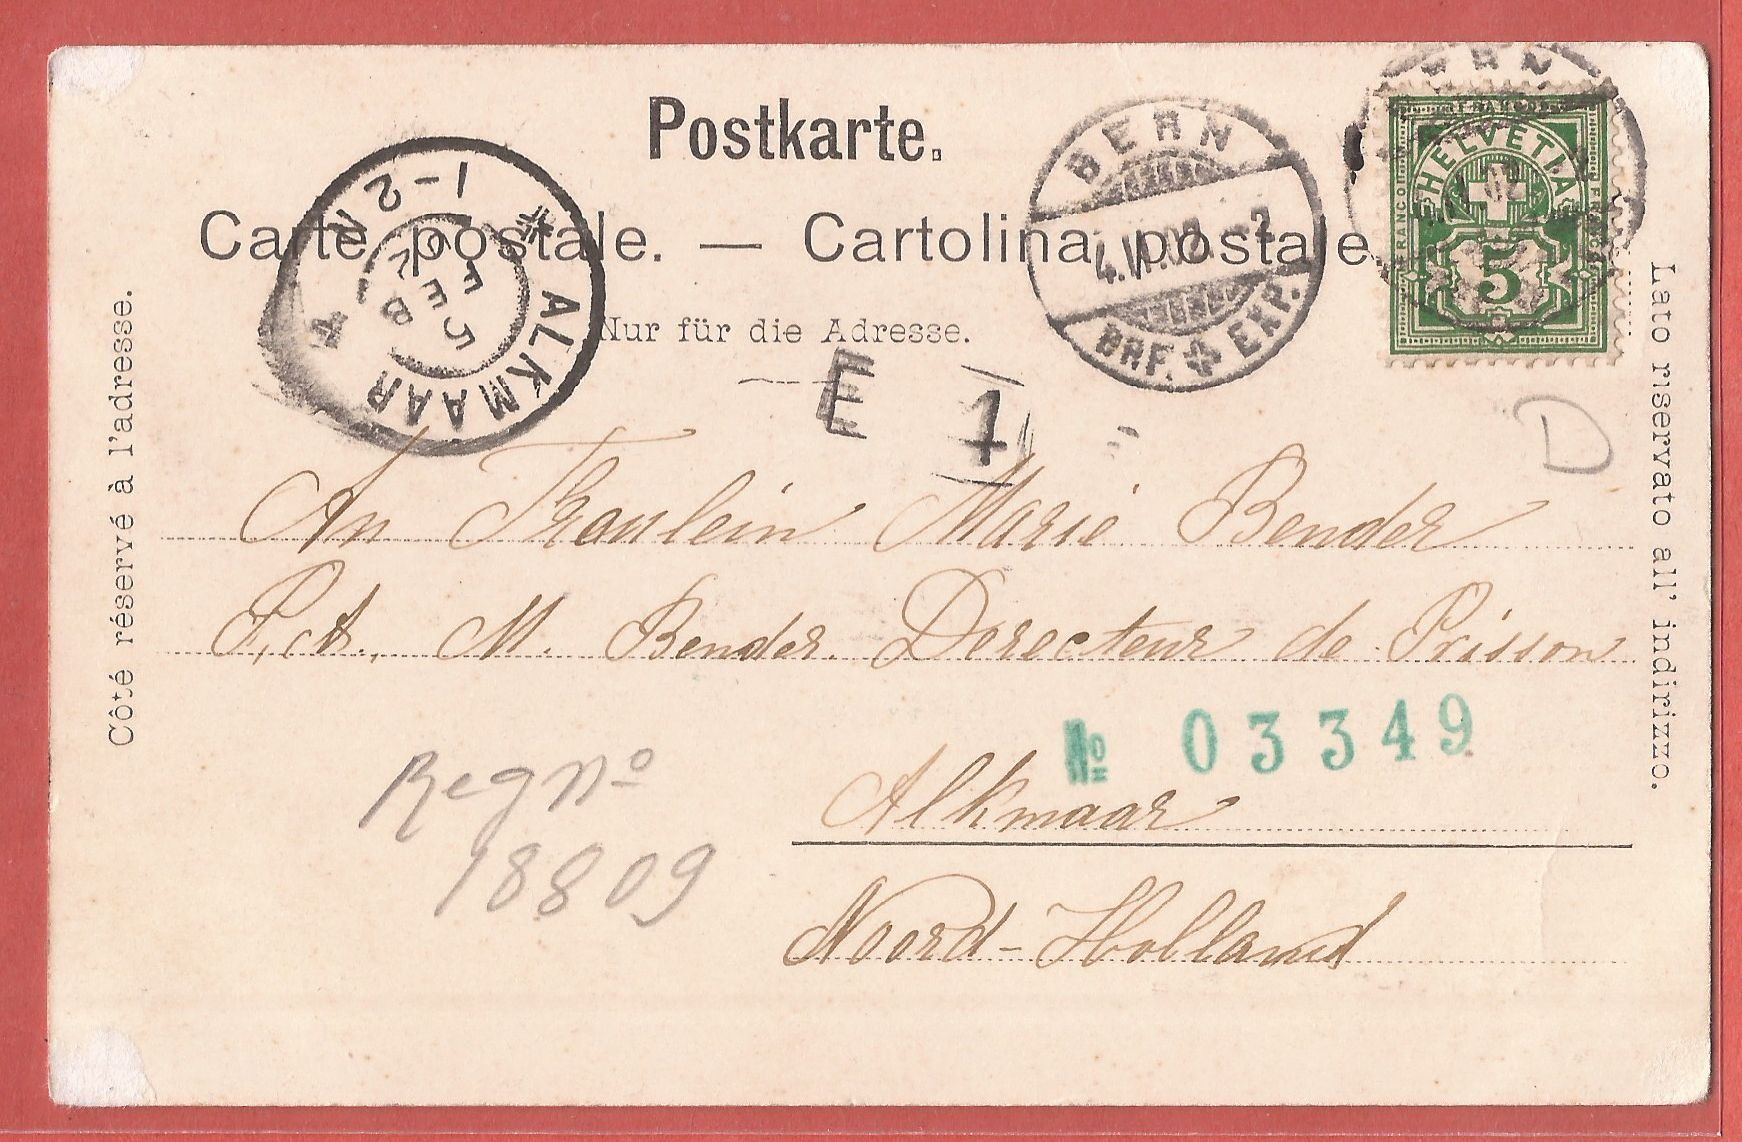 Postkarte.
Carte postale. — Cartolina postale.
Nur für die Adresse.
Côté réservé à l'adresse.
Lato riservato all' indirizzo.
ALKMAAR
1-2 N
5
FEB
4
BERN
BRF. EXP.
HELVETIA
FRANCO
5
E 1
D
An Fraulein Marie Bender
M. Bender Derecteur de Prisson
№ 03349
Alkmaar
Noord-Holland
Reg no
18809